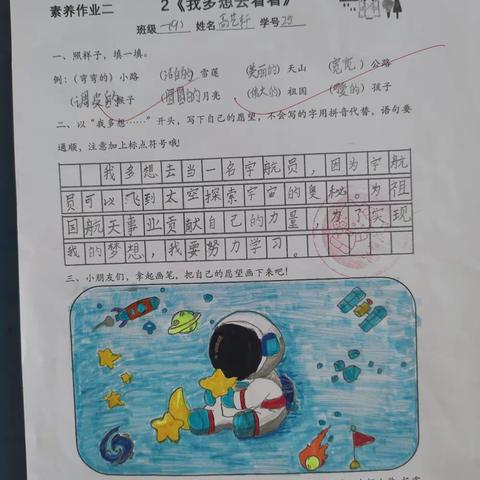 素养作业二
2《我多想去看看》
班级 一(9) 姓名 学号 25
一、照样子，填一填。
例：(弯弯的)小路 (洁白的)雪莲 (美丽的)天山 (宽宽)公路
(调皮的)猴子 (圆圆的)月亮 (伟大的)祖国 (可爱的)孩子
二、以“我多想……”开头，写下自己的愿望，不会写的字用拼音代替，语句要
通顺，注意加上标点符号哦!
我多想去当一名宇航员，因为宇航
员可以飞到太空探索宇宙的奥秘。为祖
国航天事业贡献自己的力量，为了实现
我的梦想，我要努力学习。
三、小朋友们，拿起画笔，把自己的愿望画下来吧!